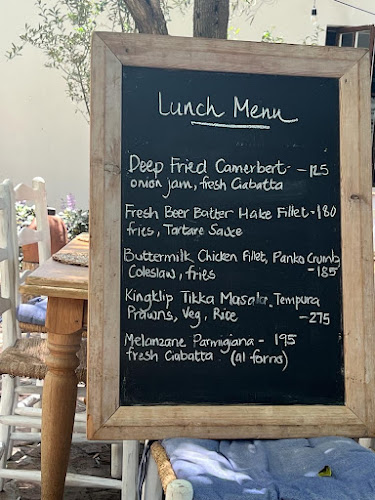 Lunch Menu
Deep Fried Camerbert - 125
onion jam, fresh Ciabatta
Fresh Beer Batter Hake Fillet - 180
fries, Tartare Sauce
Buttermilk Chicken Fillet, Panko Crumb
Coleslaw, fries - 185
Kingklip Tikka Masala, Tempura
Prawns, Veg, Rice - 275
Melanzane Parmigiana - 195
fresh Ciabatta (al forns)